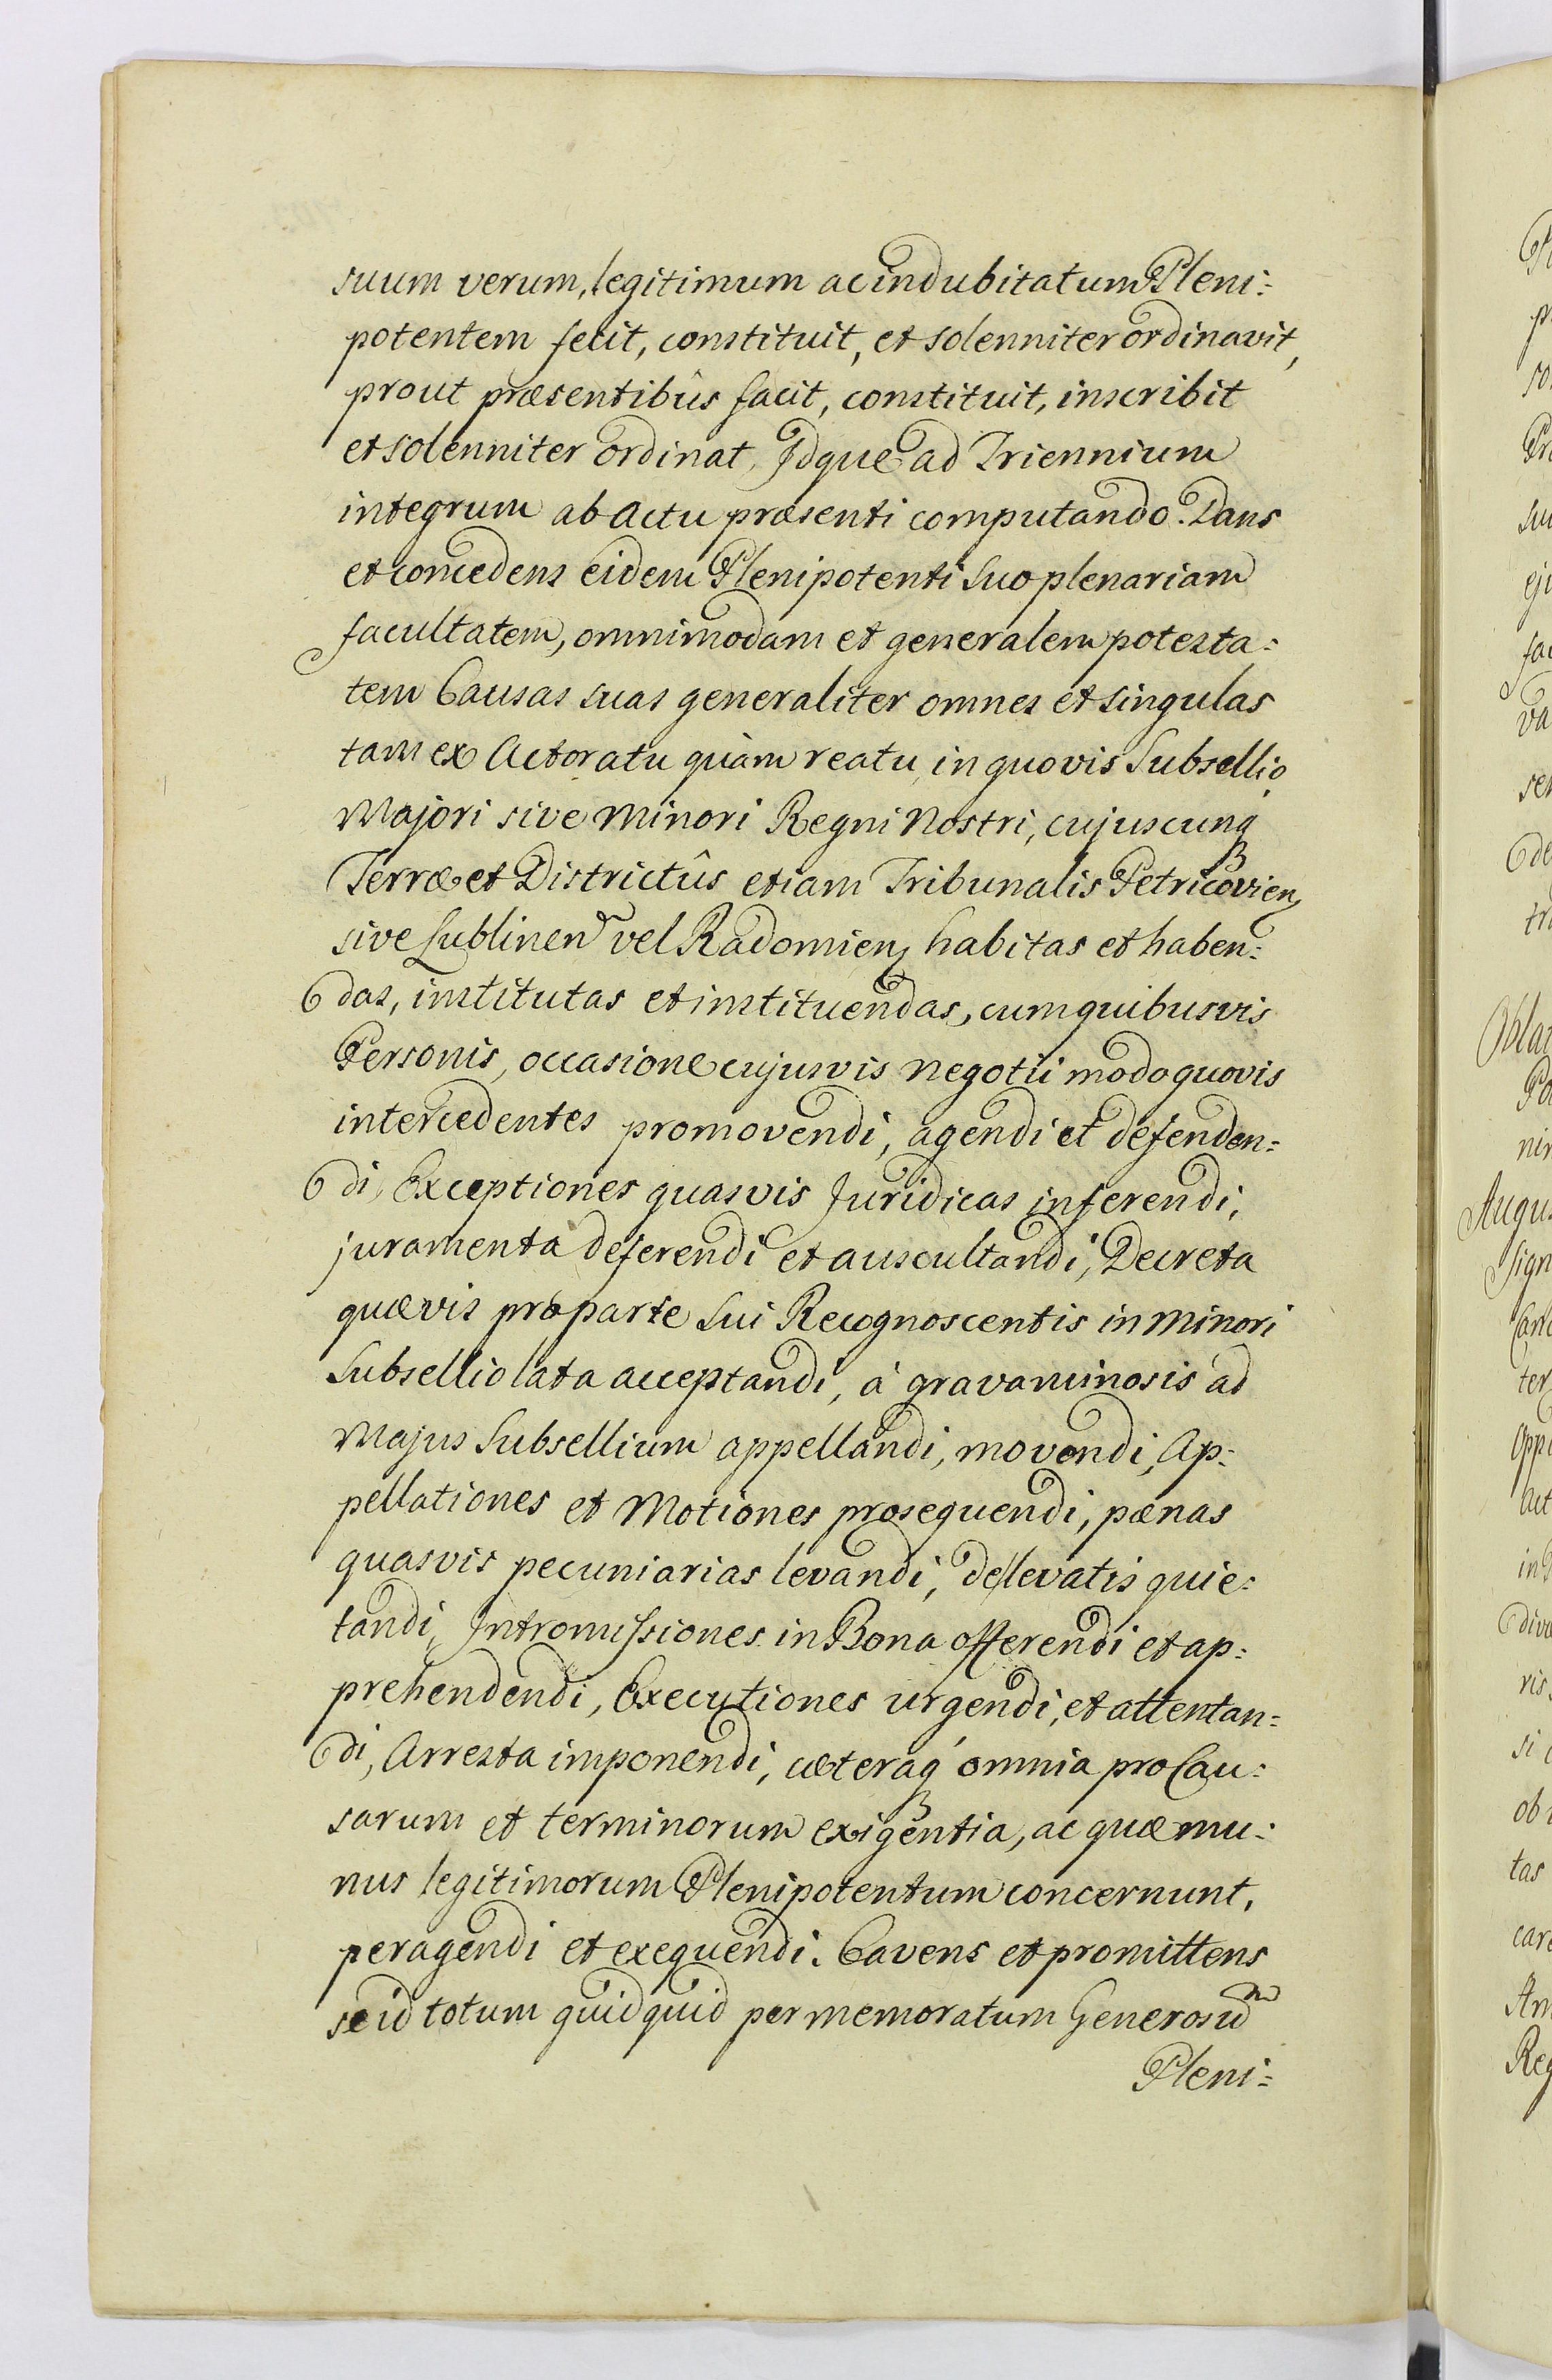 suum verum, legitimum ac indubitatum Pleni:
potentem fecit, constituit, et solenniter ordinavit,
prout præsentibûs facit, constituit, inscribit
et solenniter ordinat, Idque ad Triennium
integrum ab actu præsenti computando. Dans
et concedens eidem Plenipotenti suo plenariam
facultatem, omnimodam et generalem potesta:
tem Causas suas generaliter omnes et singulas
tam ex Actoratu quàm reatu, in quovis Subsellio
Majori sive Minori Regni Nostri, cujuscunq
Terræ et Districtûs etiam Tribunalis Petricovien
sive Lublinen vel Radomien habitas et haben:
das, institutas et instituendas, cum quibusvis
Personis, occasione cujusvis negotii modo quovis
intercedentes promovendi, agendi et defenden:
di, Exceptiones quasvis Juridicas inferendi,
juramenta deferendi et auscultandi, Decreta
quævis pro parte sui Recognoscentis in Minori
Subsellio lata acceptandi, à gravaminosis ad
Majus Subsellium appellandi, movendi, Ap:
pellationes et Motiones prosequendi, pænas
quasvis pecuniarias levandi, de levatis quie:
tandi, Intromissiones in Bona offerendi et ap:
prehendendi, Executiones urgendi, et attentan:
di, Arresta imponendi, cæteraq omnia pro Cau:
sarum et terminorum exigentia, ac quæ mu:
nus legitimorum Plenipotentum concernunt,
peragendi et exequendi. Cavens et promittens
se id totum quidquid per memoratum Generosū
Pleni: